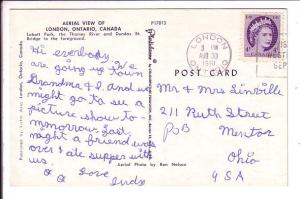 AERIAL VIEW OF
LONDON, ONTARIO, CANADA
Labatt Park, the Thames River and Dundas St.
Bridge to the foreground.
P17813
Hi everbody
are going up town
Grandma & I and we
might go to see a
picture show to-
mmorrow. Last
night a friend was
over & ate supper with
us.
Love
Judy
Aerial Photo by Ron Nelson
LONDON
PM
1961
ONTARIO
SEP
CANADA
POST CARD
Mr & Mrs Linville
211 Ruth Street
POB Mentor
Ohio
USA